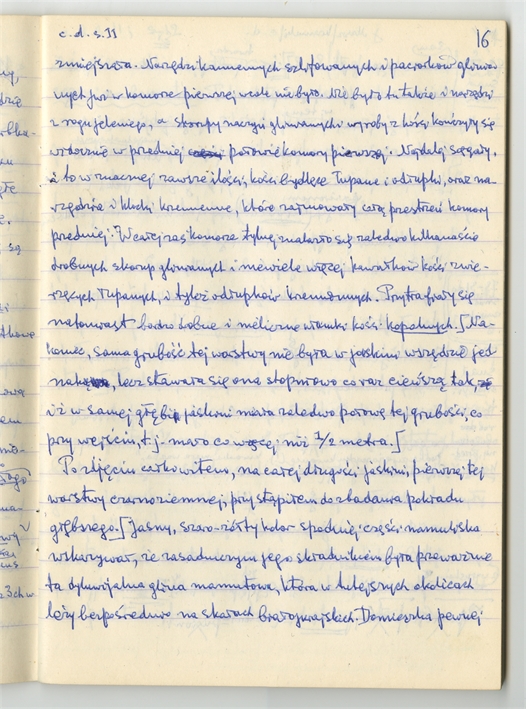 c.d.s.II
16
zmniejszała. Narzędzi kamiennych szlifowanych i paciorków glinia-
nych już w komorze pierwszej wcale nie było. Nie było tu także i narzędzi
z rogu jeleniego, a skorupy naczyń glinianych i wyroby z kości kończyły się
właśnie w przedniej połowie komory pierwszej. Najdalej sięgały,
i to w znacznej zawsze ilości, kości bydlęce łupane i odłupki, oraz na-
rzędzia i klocki krzemienne, które zajmowały całą przestrzeń komory
przedniej. W całej zaś komorze tylnej znalazło się zaledwo kilkanaście
drobnych skorup glinianych i niewiele więcej kawałków kości zwie-
rzęcych łupanych, i tyleż odłupków krzemiennych. Przytrafiały się
natomiast bardzo drobne i nieliczne ułamki kości kopalnych. [Na-
koniec, sama grubość tej warstwy nie była w jaskini wszędzie jed
naka, lecz stawała się ona stopniowo coraz cieńszą tak,
iż w samej głębi jaskini miała zaledwo połowę tej grubości, co
przy wejściu, t.j. mało co więcej niż 1/2 metra.]
Po zdjęciu całkowitem, na całej długości jaskini, pierwszej tej
warstwy czarnoziemnej, przystąpiłem do zbadania pokładu
głębszego. [Jasny, szaro-żółty kolor spodniej części namuliska
wskazywał, że zasadniczym jego składnikiem była przeważnie
ta dyluwijalna glina mamutowa, która w tutejszych okolicach
leży bezpośrednio na skałach białojurajskich. Domieszka pewnej